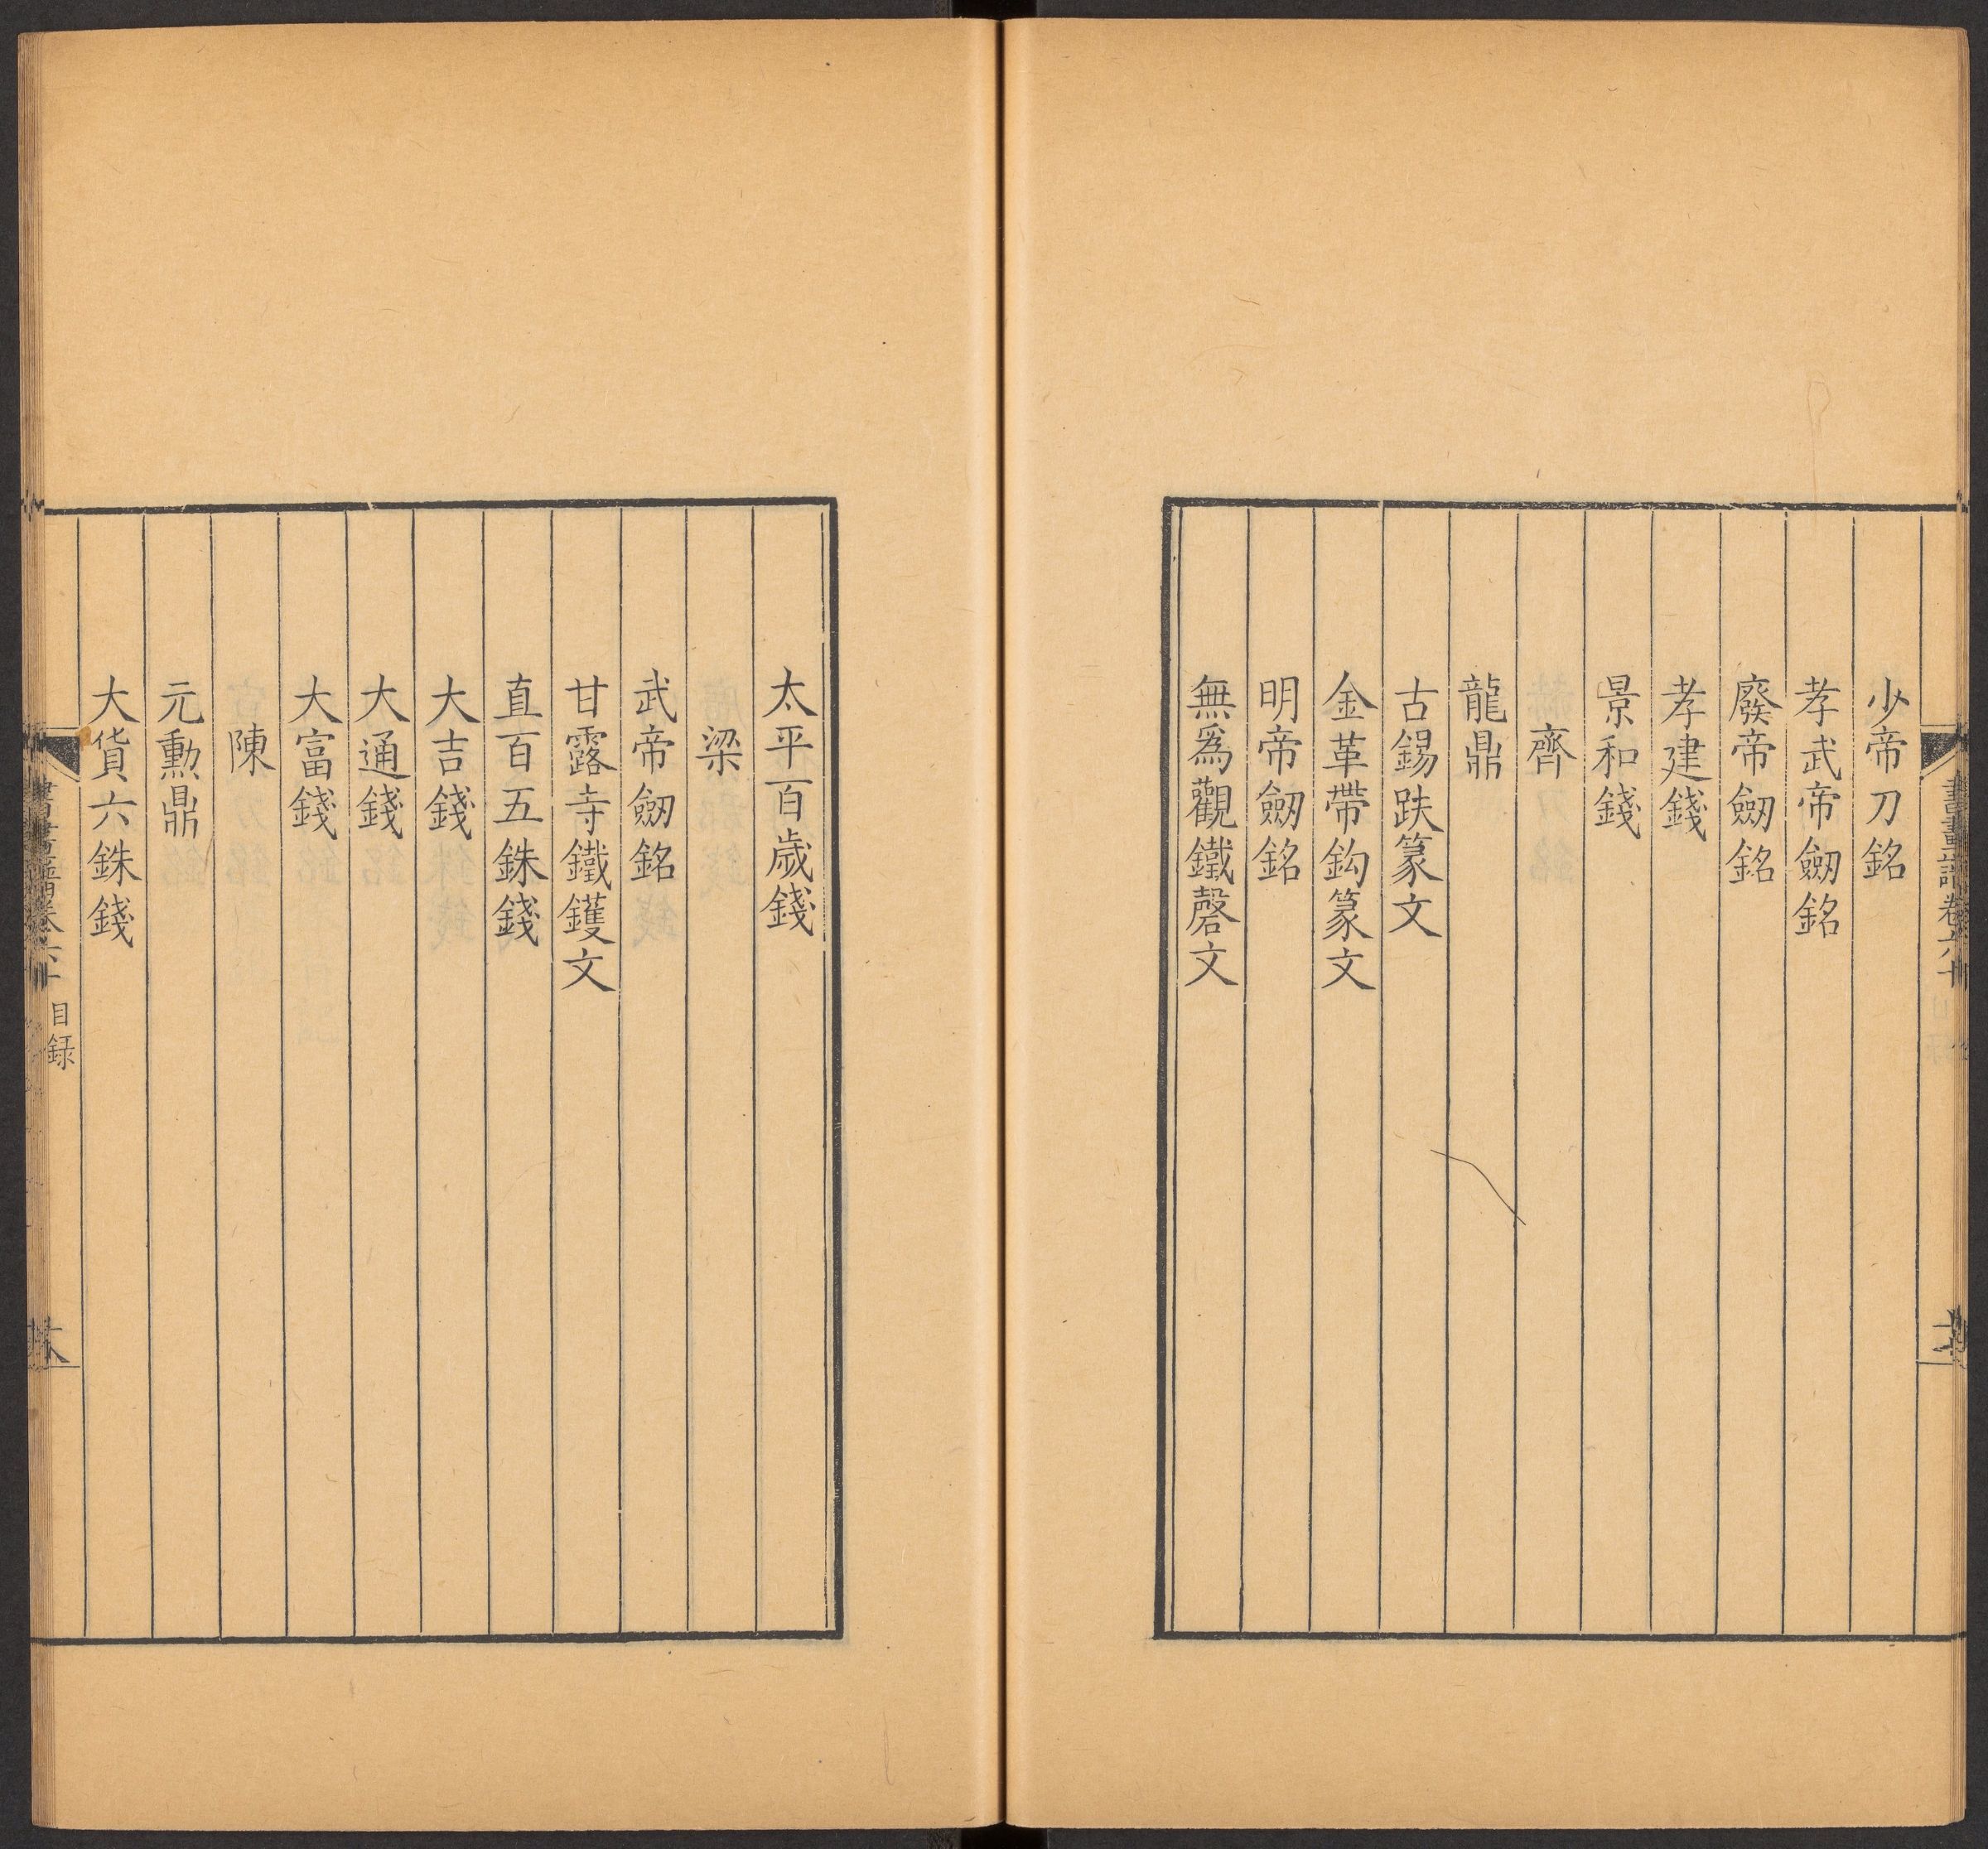 少帝刀銘
孝武帝劒銘
廢帝劒銘
孝建錢
景和錢
齊
龍鼎
古錫趺篆文
金革帶鈎篆文
明帝劒銘
無爲觀鐵磬文
太平百歲錢
梁
武帝劒銘
甘露寺鐵鑊文
直百五銖錢
大吉錢
大通錢
大富錢
陳
元勳鼎
大貨六銖錢
目録